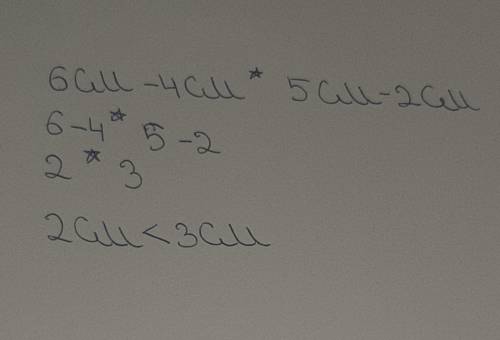 6см-4см* 5см-2см
6-4* 5-2
2* 3
2см<3см